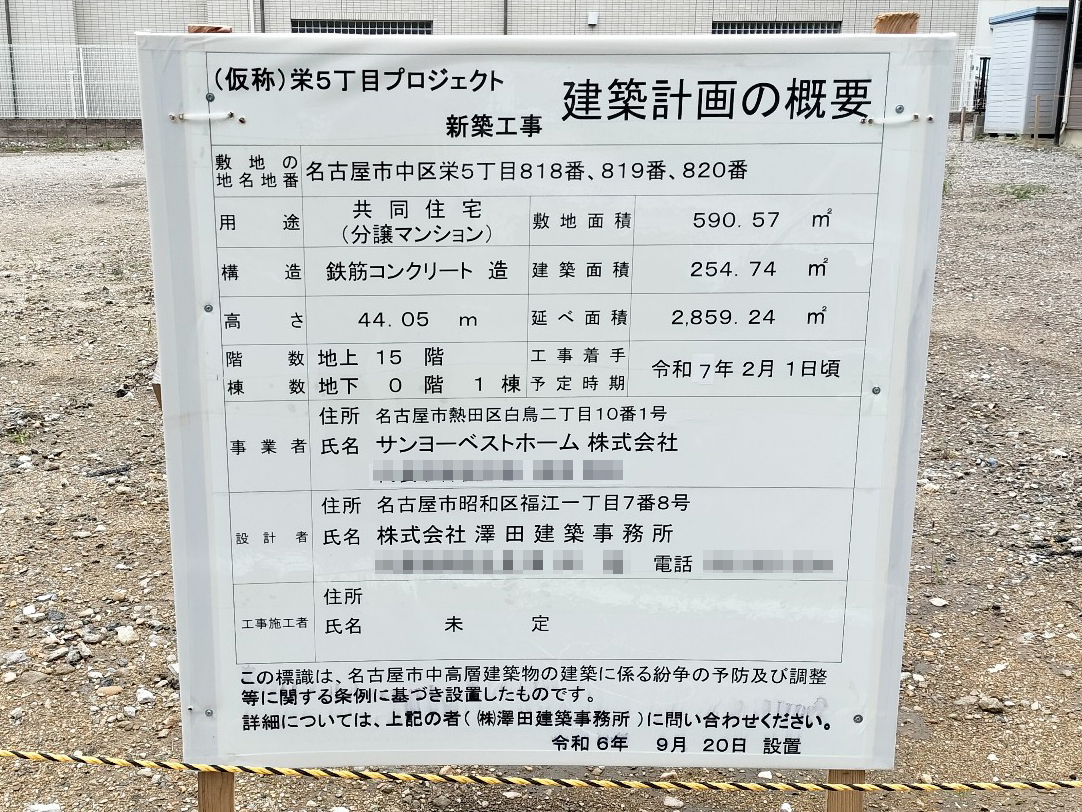 (仮称)栄5丁目プロジェクト
新築工事
建築計画の概要
敷地の地名地番 名古屋市中区栄5丁目818番、819番、820番
用途 共同住宅(分譲マンション) 敷地面積 590.57 ㎡
構造 鉄筋コンクリート 造 建築面積 254.74 ㎡
高さ 44.05 m 延べ面積 2,859.24 ㎡
階数 地上 15 階 工事着手
棟数 地下 0 階 1 棟 予定時期 令和 7年 2月 1日頃
事業者 住所 名古屋市熱田区白鳥二丁目10番1号
氏名 サンヨーベストホーム 株式会社
設計者 住所 名古屋市昭和区福江一丁目7番8号
氏名 株式会社 澤田建築事務所
電話
工事施工者 住所
氏名 未定
この標識は、名古屋市中高層建築物の建築に係る紛争の予防及び調整
等に関する条例に基づき設置したものです。
詳細については、上記の者(㈱澤田建築事務所)に問い合わせください。
令和6年 9月 20日 設置